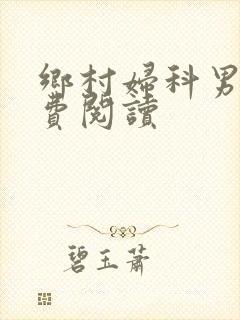 鄉村婦科男
費閱讀
碧玉蕭